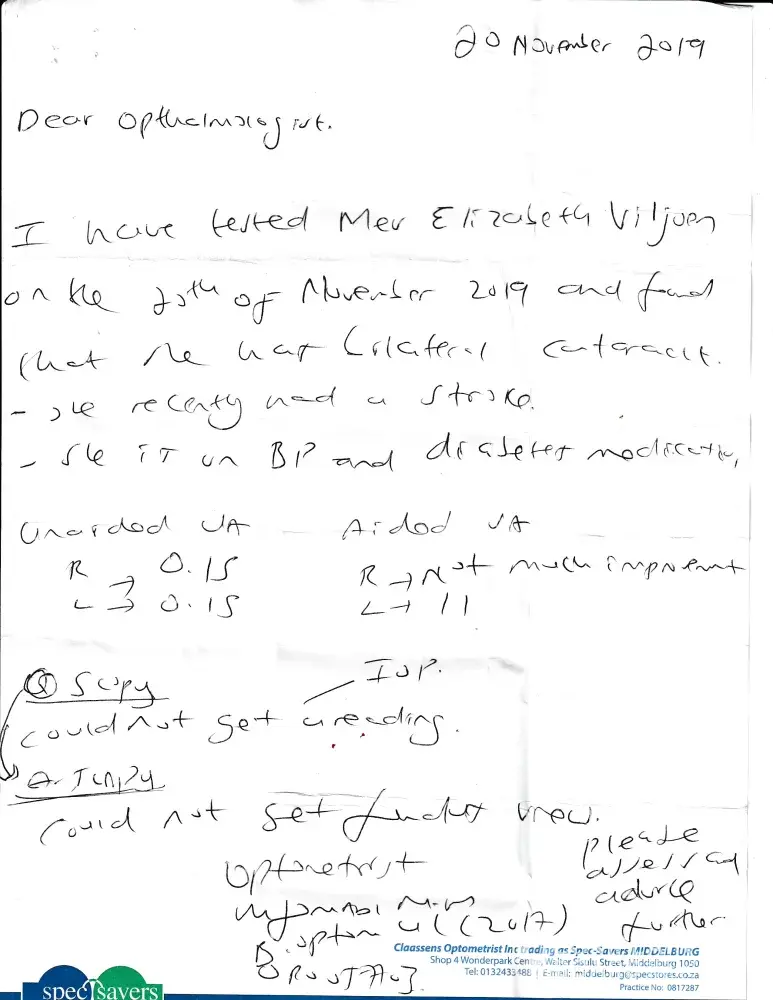 20 November 2019
Dear Opthalmologist.
I have tested Mev Elizabeth Viljoen
on the 20th of November 2019 and found
that she has bilateral cataract.
- she recently had a stroke.
- she is on BP and diabetes medication,
Unaided VA Aided VA
R → 0.15 R → Not much improvement
L → 0.15 L → 11
Scopy IOP.
could not get a reading.
could not get fundus view.
Optometrist please
assess and
advice
B. optom (2017) further
Claassens Optometrist Inc trading as Spec-Savers MIDDELBURG
Shop 4 Wonderpark Centre, Walter Sisulu Street, Middelburg 1050
Tel: 0132433488 | E-mail: middelburg@specstores.co.za
Practice No: 0817287
spec savers